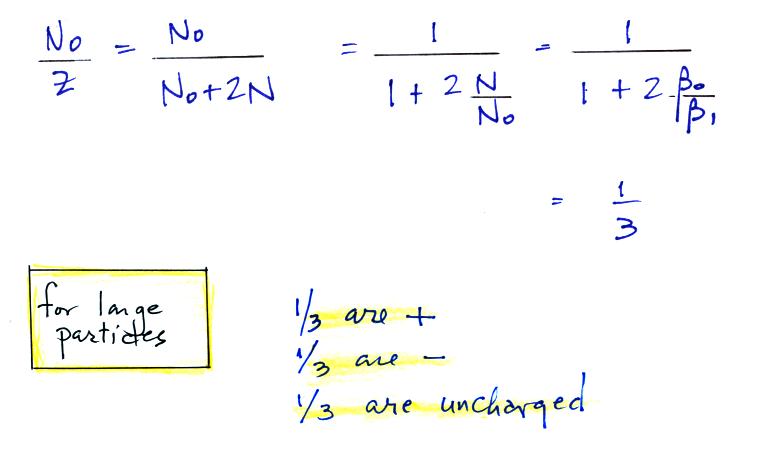 N₀/Z = N₀/(N₀+2N) = 1/(1 + 2 N/N₀) = 1/(1 + 2 β₀/β₁)
= 1/3
for large
particles
1/3 are +
1/3 are −
1/3 are uncharged